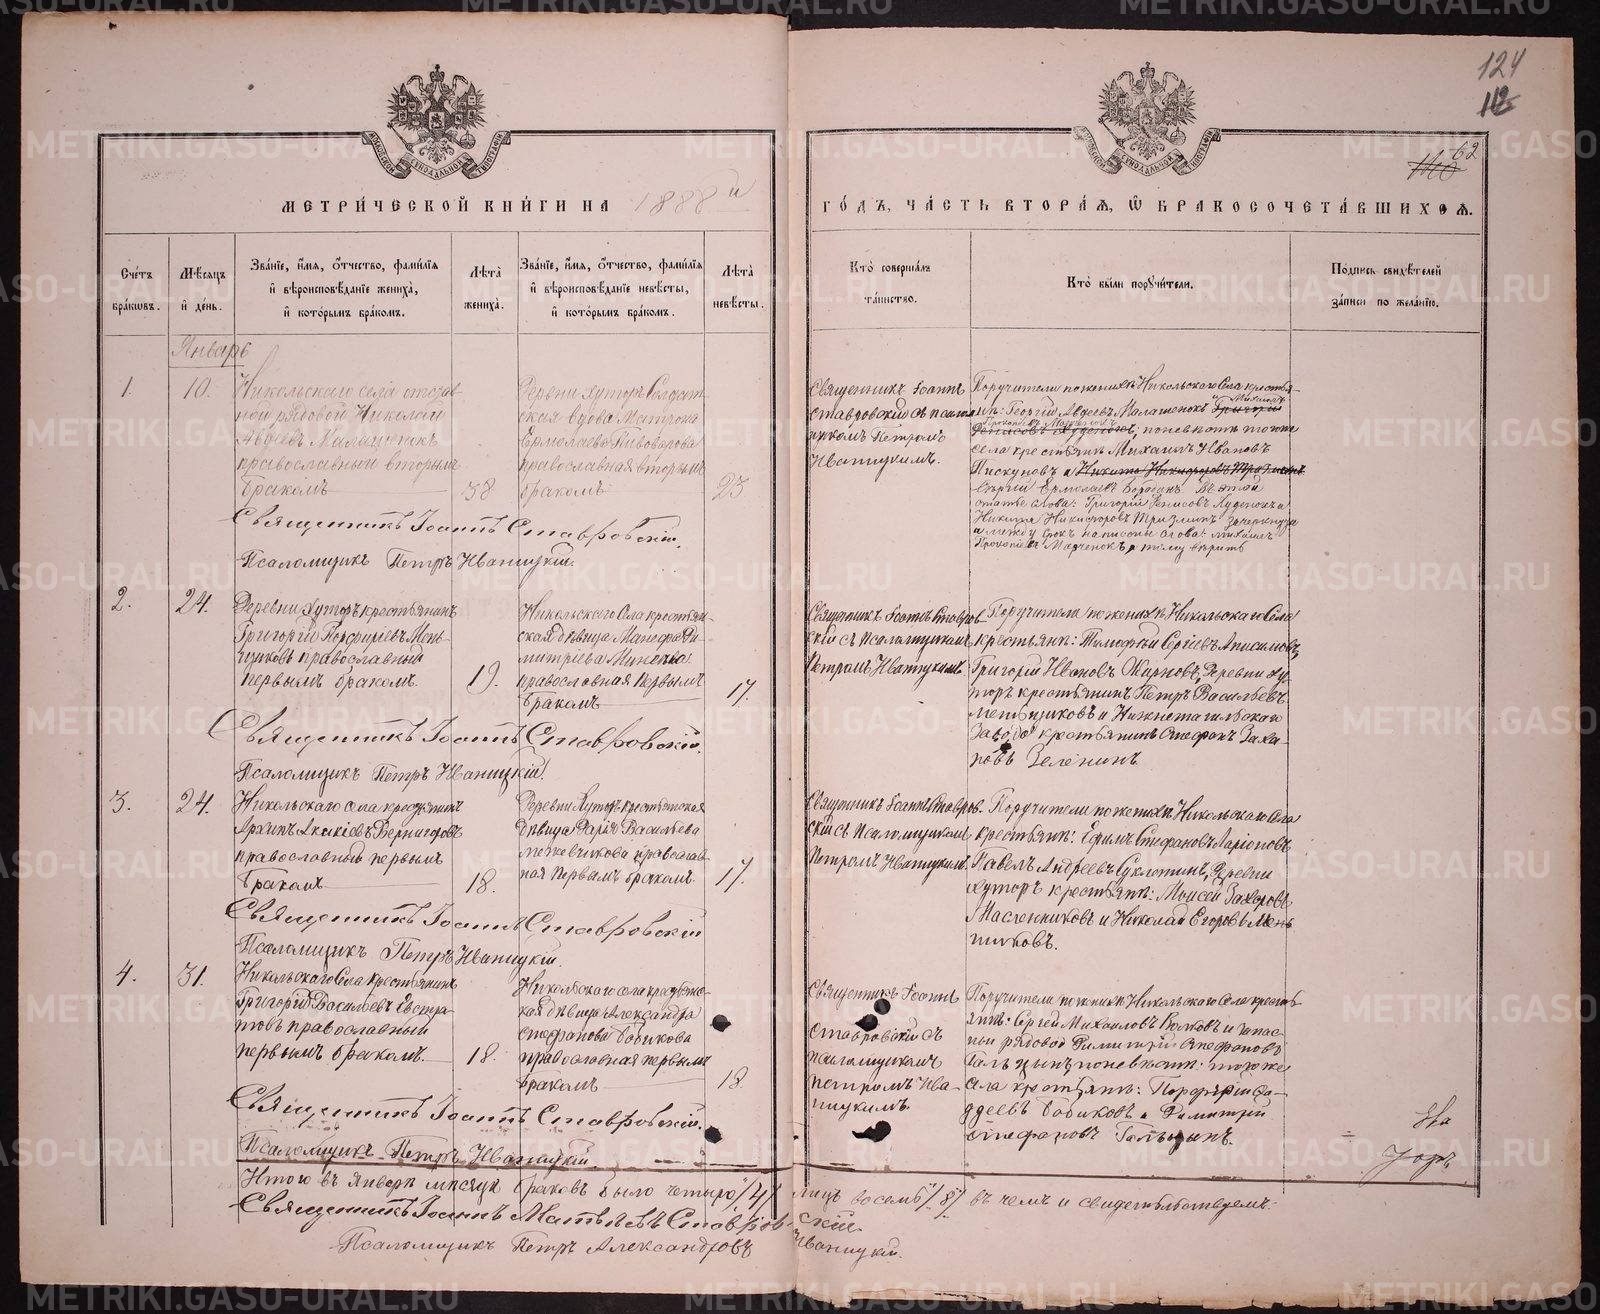 124
112
110
62
МЕТРИЧЕСКОЙ КНИГИ НА 1888 й
ГОДЪ, ЧАСТЬ ВТОРАЯ, Ѿ БРАКОСОЧЕТАВШИХСЯ.
Счетъ браковъ.
Мѣсяцъ и день.
Званіе, имя, отчество, фамилія
и вѣроисповѣданіе жениха,
и которымъ бракомъ.
Лѣта
жениха.
Званіе, имя, отчество, фамилія
и вѣроисповѣданіе невѣсты,
и которымъ бракомъ.
Лѣта
невѣсты.
Кто совершалъ
таинство.
Кто были поручители.
Подпись свидѣтелей
записи по желанію.
Январь
1.
10.
Никольскаго села отстав-
ной рядовой Николай
Авдеевъ Малашенокъ
православный вторымъ
бракомъ
38
Деревни Хуторъ Солдат-
ская вдова Матрона
Ермолаева Пивоварова
православная вторымъ
бракомъ
23
Священникъ Іоаннъ
Ставровскій съ псалом-
щикомъ Петромъ
Иваницкимъ.
Поручители по женихѣ Никольскаго села крестья-
нѣ: Георгій Авдеевъ Малашенокъ Григорій
и Михаилъ
Прокопіевъ Марченокъ
Денисовъ Худенокъ, по невѣстѣ тогоже
села крестьянѣ Михаилъ Ивановъ
Пискуновъ и Никита Никифоровъ Тризминъ
Ермолаевъ Бородинъ. Въ этой
статьѣ слова: Григорій Денисовъ Худенокъ и
Никита Никифоровъ Тризминъ зачеркнуты
а между срокъ написаны слова: Михаилъ
Прокопіевъ Марченокъ, тому вѣрить
Священникъ Іоаннъ Ставровскій.
Псаломщикъ Петръ Иваницкій.
2.
24.
Деревни Хуторъ крестьянинъ
Григорій Порфирьевъ Мень-
щиковъ православный
первымъ бракомъ.
19.
Никольскаго села крестьян-
ская дѣвица Манефа Ди-
митріева Минеева
православная первымъ
бракомъ
17.
Священникъ Іоаннъ Ставров-
скій съ псаломщикомъ
Петромъ Иваницкимъ.
Поручители по женихѣ Никольскаго села
крестьянѣ: Тимофей Сергіевъ Анисимовъ,
Григорій Ивановъ Жарковъ, Деревни Ху-
торъ крестьянинъ Петръ Васильевъ
Меньщиковъ и Нижнетагильскаго
Завода крестьянинъ Стефанъ Заха-
ровъ Зеленинъ
Священникъ Іоаннъ Ставровскій.
Псаломщикъ Петръ Иваницкій.
3.
24.
Никольскаго села крестьянинъ
Архипъ Акакіевъ Вернигоровъ
православный первымъ
бракомъ
18.
Деревни Хуторъ крестьянская
дѣвица Дарія Васильева
православ-
ная первымъ бракомъ.
17.
Священникъ Іоаннъ Ставров.
скій съ псаломщикомъ
Петромъ Иваницкимъ
Поручители по женихѣ Никольскаго села
крестьянѣ: Ефимъ Стефановъ Ларіоновъ
Павелъ Андреевъ Суклетинъ, Деревни
Хуторъ крестьянѣ: Моисей Захаровъ
Масленниковъ и Николай Егоровъ Мень
щиковъ.
Священникъ Іоаннъ Ставровскій
Псаломщикъ Петръ Иваницкій.
4.
31.
Никольскаго села крестьянинъ
Григорій Васильевъ Евстра-
товъ православный
первымъ бракомъ.
18.
Никольскаго села крестьянс-
кая дѣвица Александра
Стефанова Бобикова
православная первымъ
бракомъ
18
Священникъ Іоаннъ
Ставровскій съ
псаломщикомъ
Петромъ Ива-
ницкимъ.
Поручители по женихѣ Никольскаго села кресть-
янѣ: Сергей Михаиловъ Волковъ и запас-
ный рядовой Димитрій Стефановъ
Гальцынъ, по невѣстѣ: тогоже
села крестьянѣ: Порфирій Фа-
ддеевъ Бобиковъ и Димитрій
Стефановъ Гальцынъ.
Священникъ Іоаннъ Ставровскій.
Псаломщикъ Петръ Иваницкій.
Итого въ Январѣ мѣсяцѣ браковъ было четыре /4/ лицъ восемь /8/ въ чемъ и свидетельствуемъ.
Священникъ Іоаннъ Матвѣевъ Ставровскій.
Псаломщикъ Петръ Александровъ Иваницкій.
METRIKI.GASO-URAL.RU